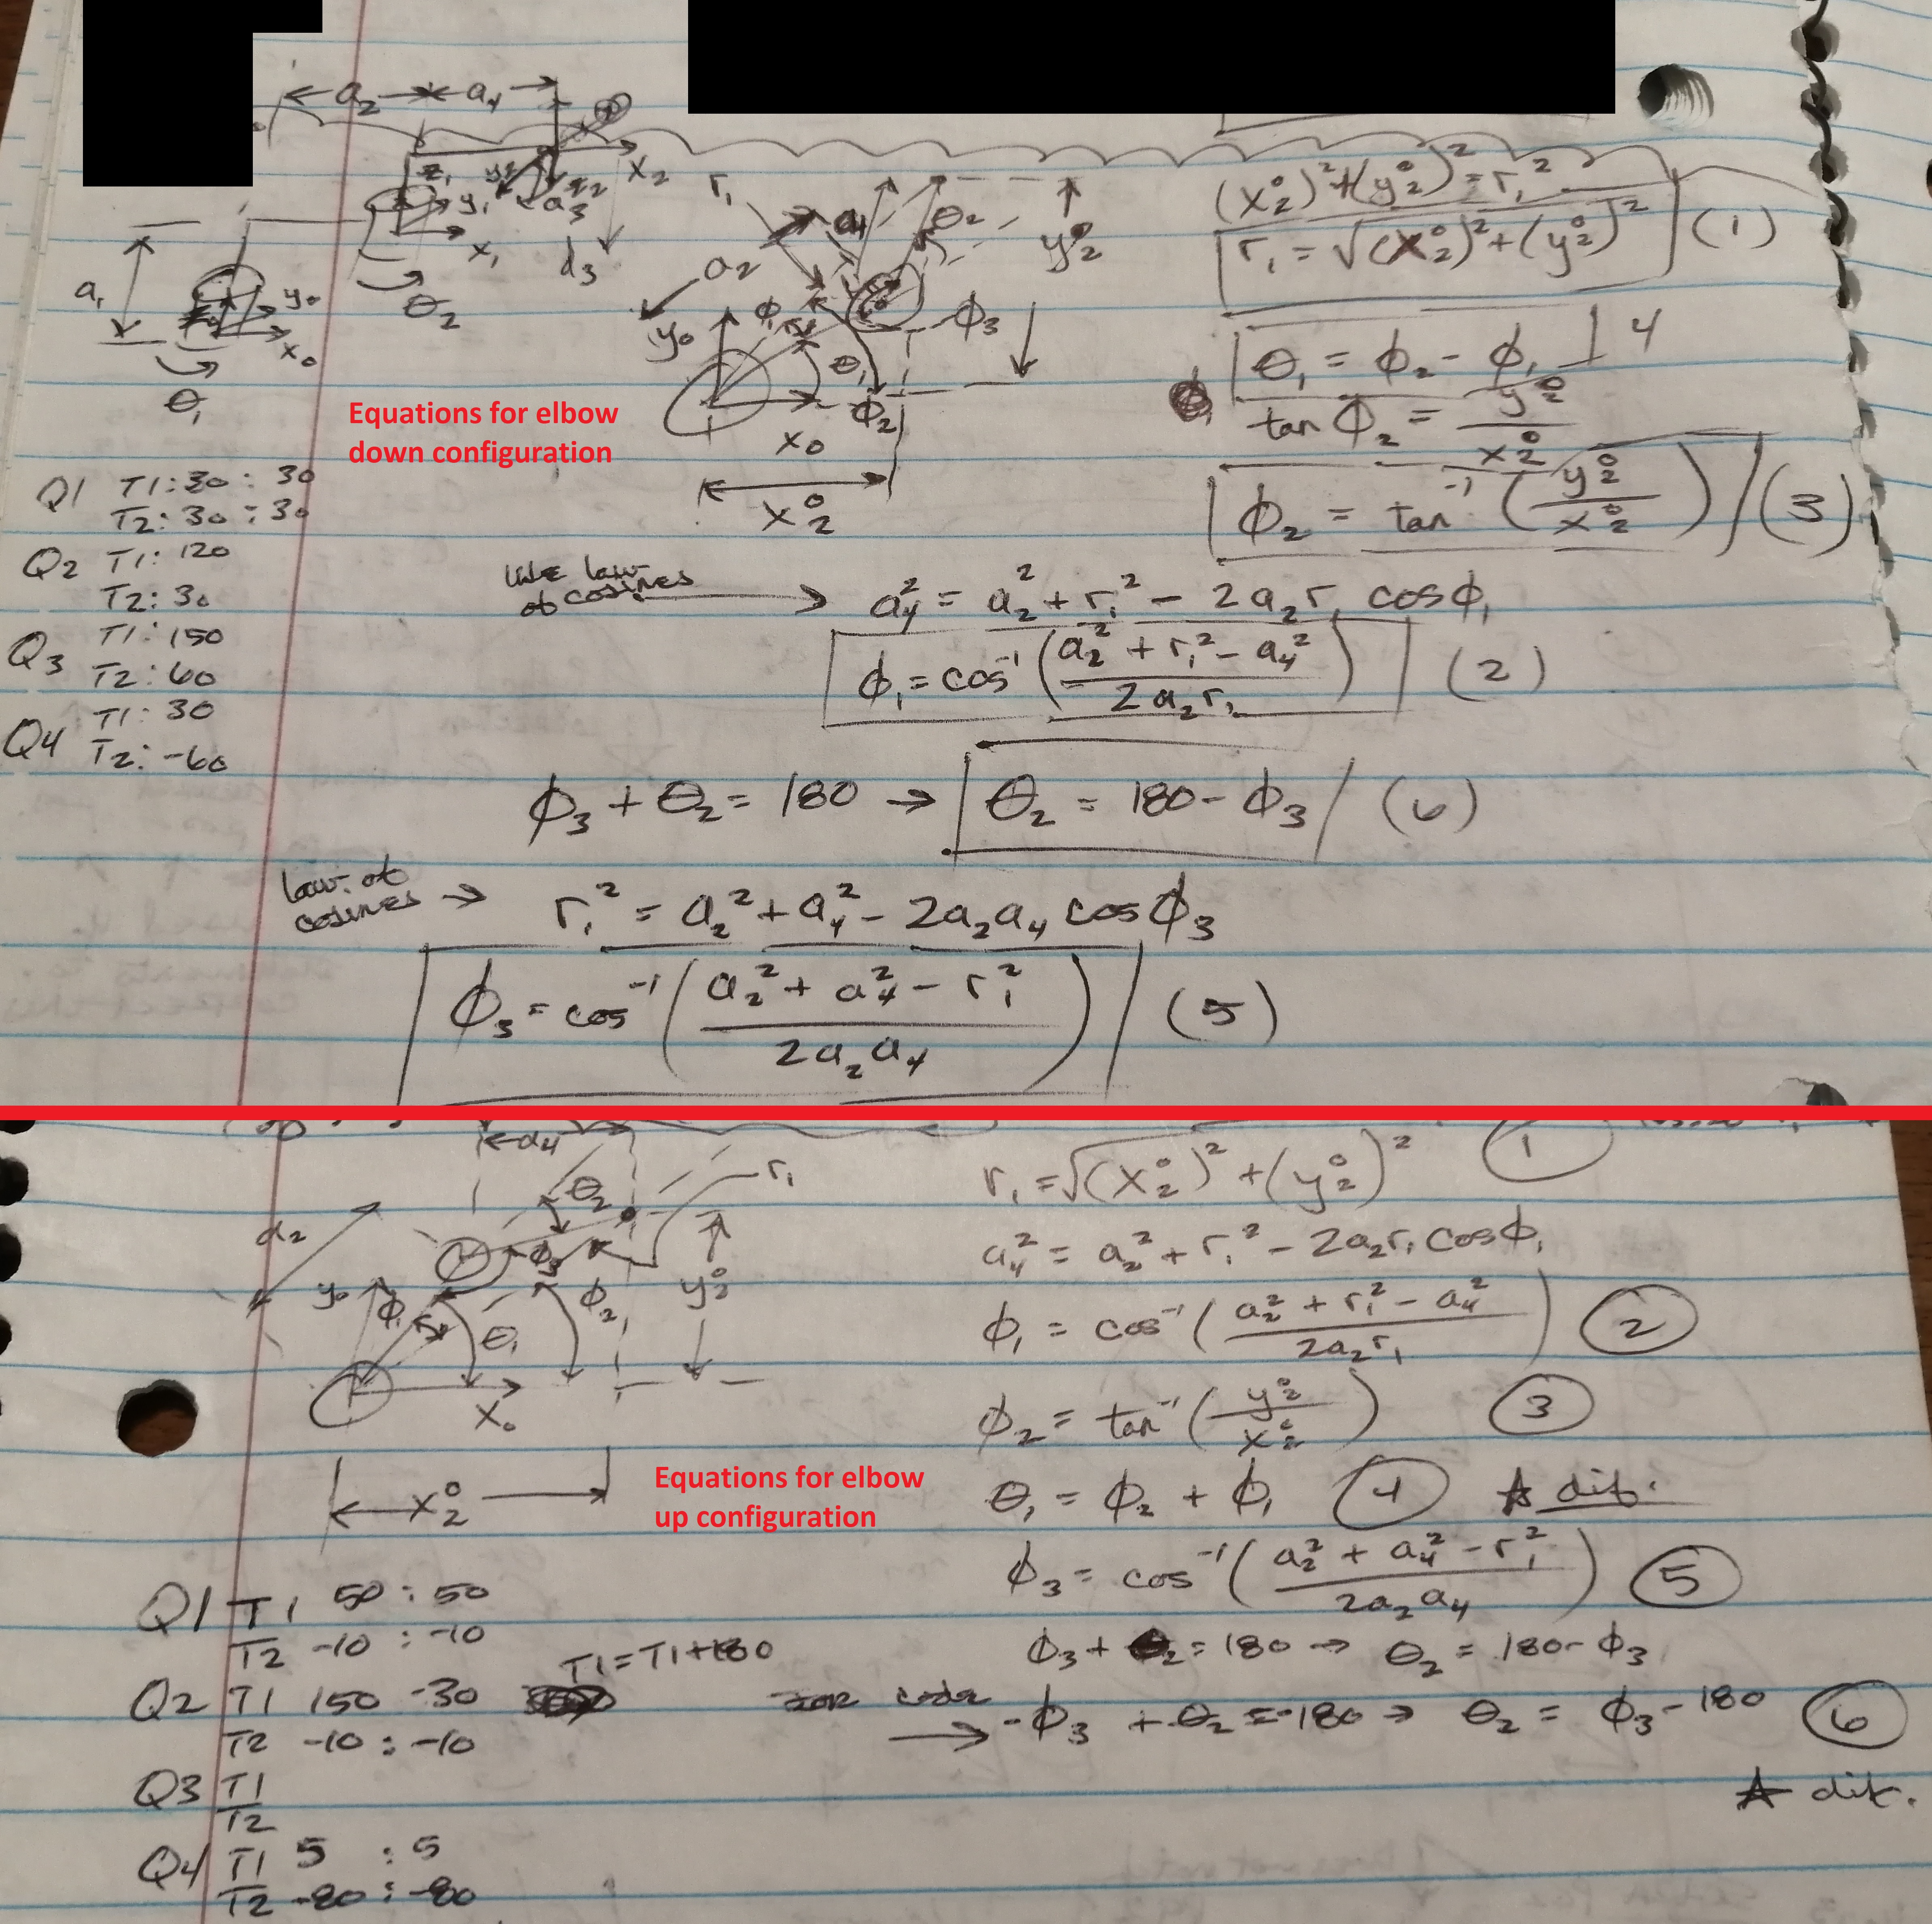 a₂ a₄
z₁ y₂ z₂ x₂
y₁ a₃
x₁ d₃
a₁ y₀
x₀
θ₁
θ₂
r₁ a₄ θ₂
a₂ y₂⁰
y₀ φ₁ φ₃
θ₁
φ₂
x₀
x₂⁰
(x₂⁰)² + (y₂⁰)² = r₁²
r₁ = √(x₂⁰)² + (y₂⁰)² (1)
θ₁ = φ₂ - φ₁ 4
tan φ₂ = y₂⁰ / x₂⁰
φ₂ = tan⁻¹ (y₂⁰ / x₂⁰) (3)
Equations for elbow
down configuration
Q1 T1: 30 : 30
T2: 30 : 30
Q2 T1: 120
T2: 30
Q3 T1: 150
T2: 60
Q4 T1: 30
T2: -60
use law
of cosines → a₄² = a₂² + r₁² - 2a₂r₁ cos φ₁
φ₁ = cos⁻¹ (a₂² + r₁² - a₄² / 2a₂r₁) (2)
φ₃ + θ₂ = 180 → θ₂ = 180 - φ₃ (6)
law of
cosines → r₁² = a₂² + a₄² - 2a₂a₄ cos φ₃
φ₃ = cos⁻¹ (a₂² + a₄² - r₁² / 2a₂a₄) (5)
a₄
θ₂ r₁
a₂
y₀ φ₁ φ₃ φ₂ y₂⁰
θ₁
x₀
x₂⁰
r₁ = √(x₂⁰)² + (y₂⁰)² 1
a₄² = a₂² + r₁² - 2a₂r₁ cos φ₁
φ₁ = cos⁻¹ (a₂² + r₁² - a₄² / 2a₂r₁) 2
φ₂ = tan⁻¹ (y₂⁰ / x₂⁰) 3
Equations for elbow
up configuration
θ₁ = φ₂ + φ₁ 4 ☆ dif.
φ₃ = cos⁻¹ (a₂² + a₄² - r₁² / 2a₂a₄) 5
φ₃ + θ₂ = 180 → θ₂ = 180 - φ₃
for code → -φ₃ + θ₂ = -180 → θ₂ = φ₃ - 180 6
☆ dif.
Q1 T1 50 : 50
T2 -10 : -10
Q2 T1 150 -30 T1 = T1+180
T2 -10 : -10
Q3 T1
T2
Q4 T1 5 : 5
T2 -80 : -80